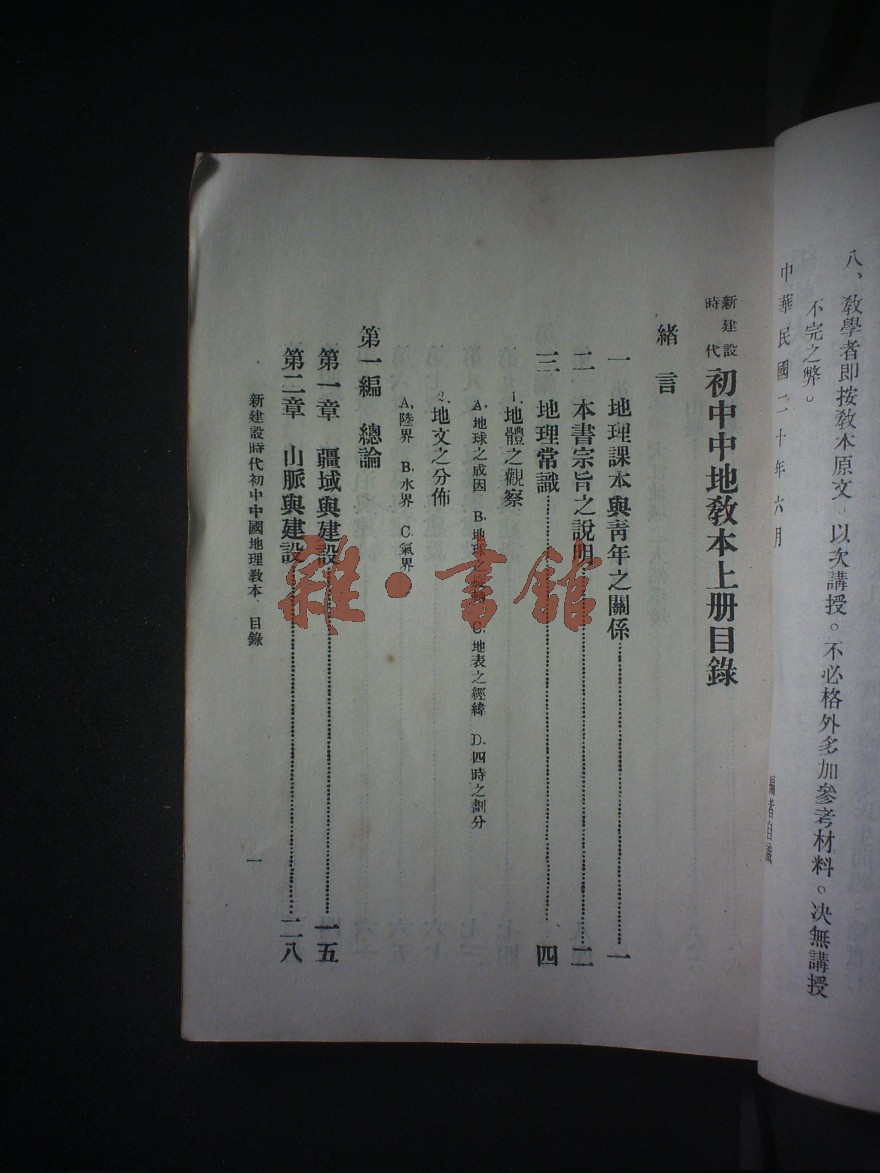 八、教學者即按教本原文，以次講授。不必格外多加參考材料。决無講授
不完之弊。
中華民國二十年六月
編者自識
新建設
時代
初中中地教本上册目錄
緒言
一 地理課本與靑年之關係……一
二 本書宗旨之說明……二
三 地理常識……四
1.地體之觀察
A.地球之成因 B.地球之 C.地表之經緯 D.四時之劃分
2.地文之分佈
A.陸界 B.水界 C.氣界
第一編 總論
第一章 疆域與建設……一五
第二章 山脈與建設……二八
新建設時代初中中國地理教本 目錄
一
雜·書館